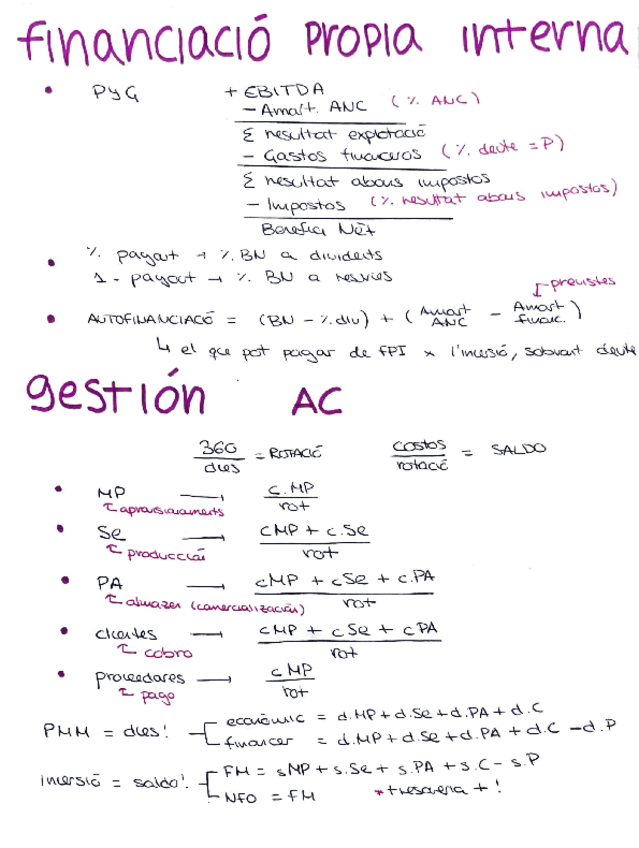 financiació propia interna
• PyG + EBITDA
− Amort. ANC (% ANC)
Σ resultat explotació
− Gastos financeros (% deute = P)
Σ resultat abans impostos
− Impostos (% resultat abans impostos)
Benefici Net
• % payout → % BN a dividents
1 - payout → % BN a reserves
previstes
• AUTOFINANCIACÓ = (BN − % div) + (Amort ANC − Amort financ.)
↳ el que pot pagar de FPI x l'inversió, sobrant deute
gestión AC
360 / dies = ROTACIÓ costos / rotació = SALDO
• MP → c.MP / rot
aprovisionaments
• Se → cMP + c.Se / rot
producción
• PA → cMP + cSe + c.PA / rot
almazen (comercialización)
• clientes → cMP + cSe + cPA / rot
cobro
• proveedores → cMP / rot
pago
PMM = dies! económic = d.MP + d.Se + d.PA + d.C
financer = d.MP + d.Se + d.PA + d.C − d.P
inversió = saldo! FM = sMP + s.Se + s.PA + s.C − s.P
NFO = FM *tresoreria + !